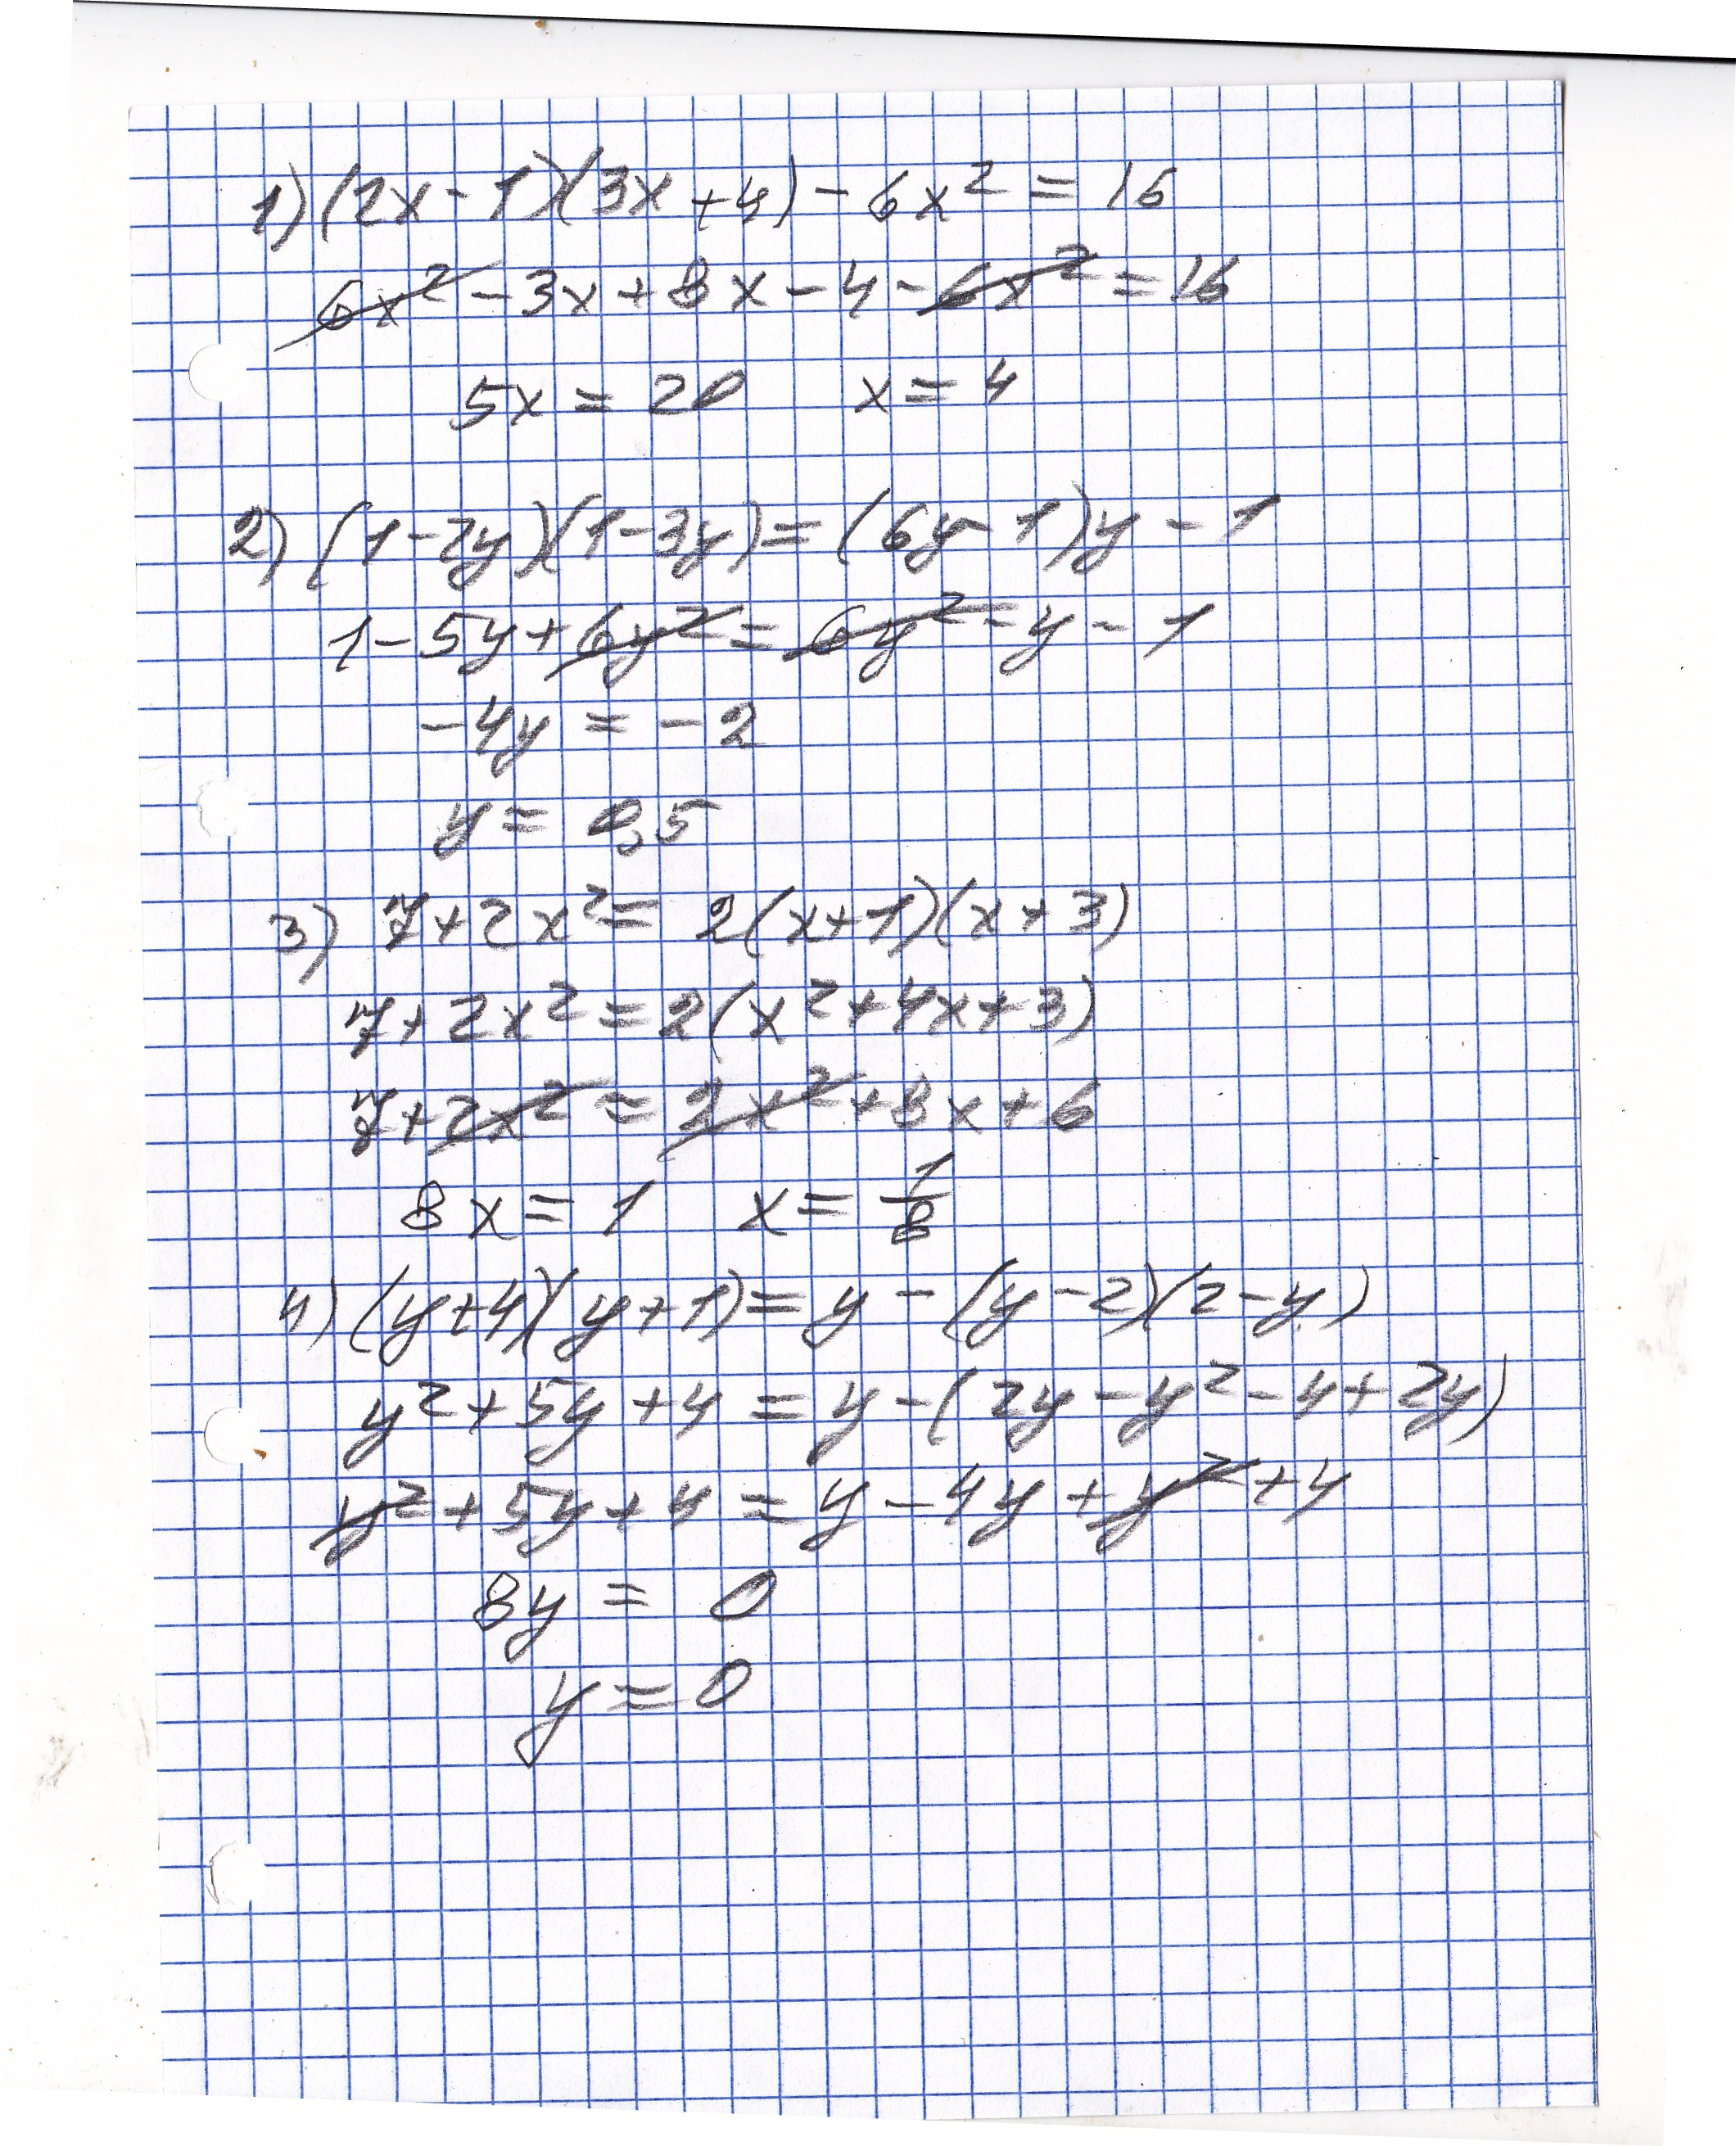 1) (2x - 1)(3x + 4) - 6x² = 16
6x² - 3x + 8x - 4 - 6x² = 16
5x = 20 x = 4
2) (1 - 2y)(1 - 3y) = (6y - 1)y - 1
1 - 5y + 6y² = 6y² - y - 1
-4y = -2
y = 0,5
3) 7 + 2x² = 2(x + 1)(x + 3)
7 + 2x² = 2(x² + 4x + 3)
7 + 2x² = 2x² + 8x + 6
8x = 1 x = 1/8
4) (y + 4)(y + 1) = y - (y - 2)(2 - y)
y² + 5y + 4 = y - (2y - y² - 4 + 2y)
y² + 5y + 4 = y - 4y + y² + 4
8y = 0
y = 0